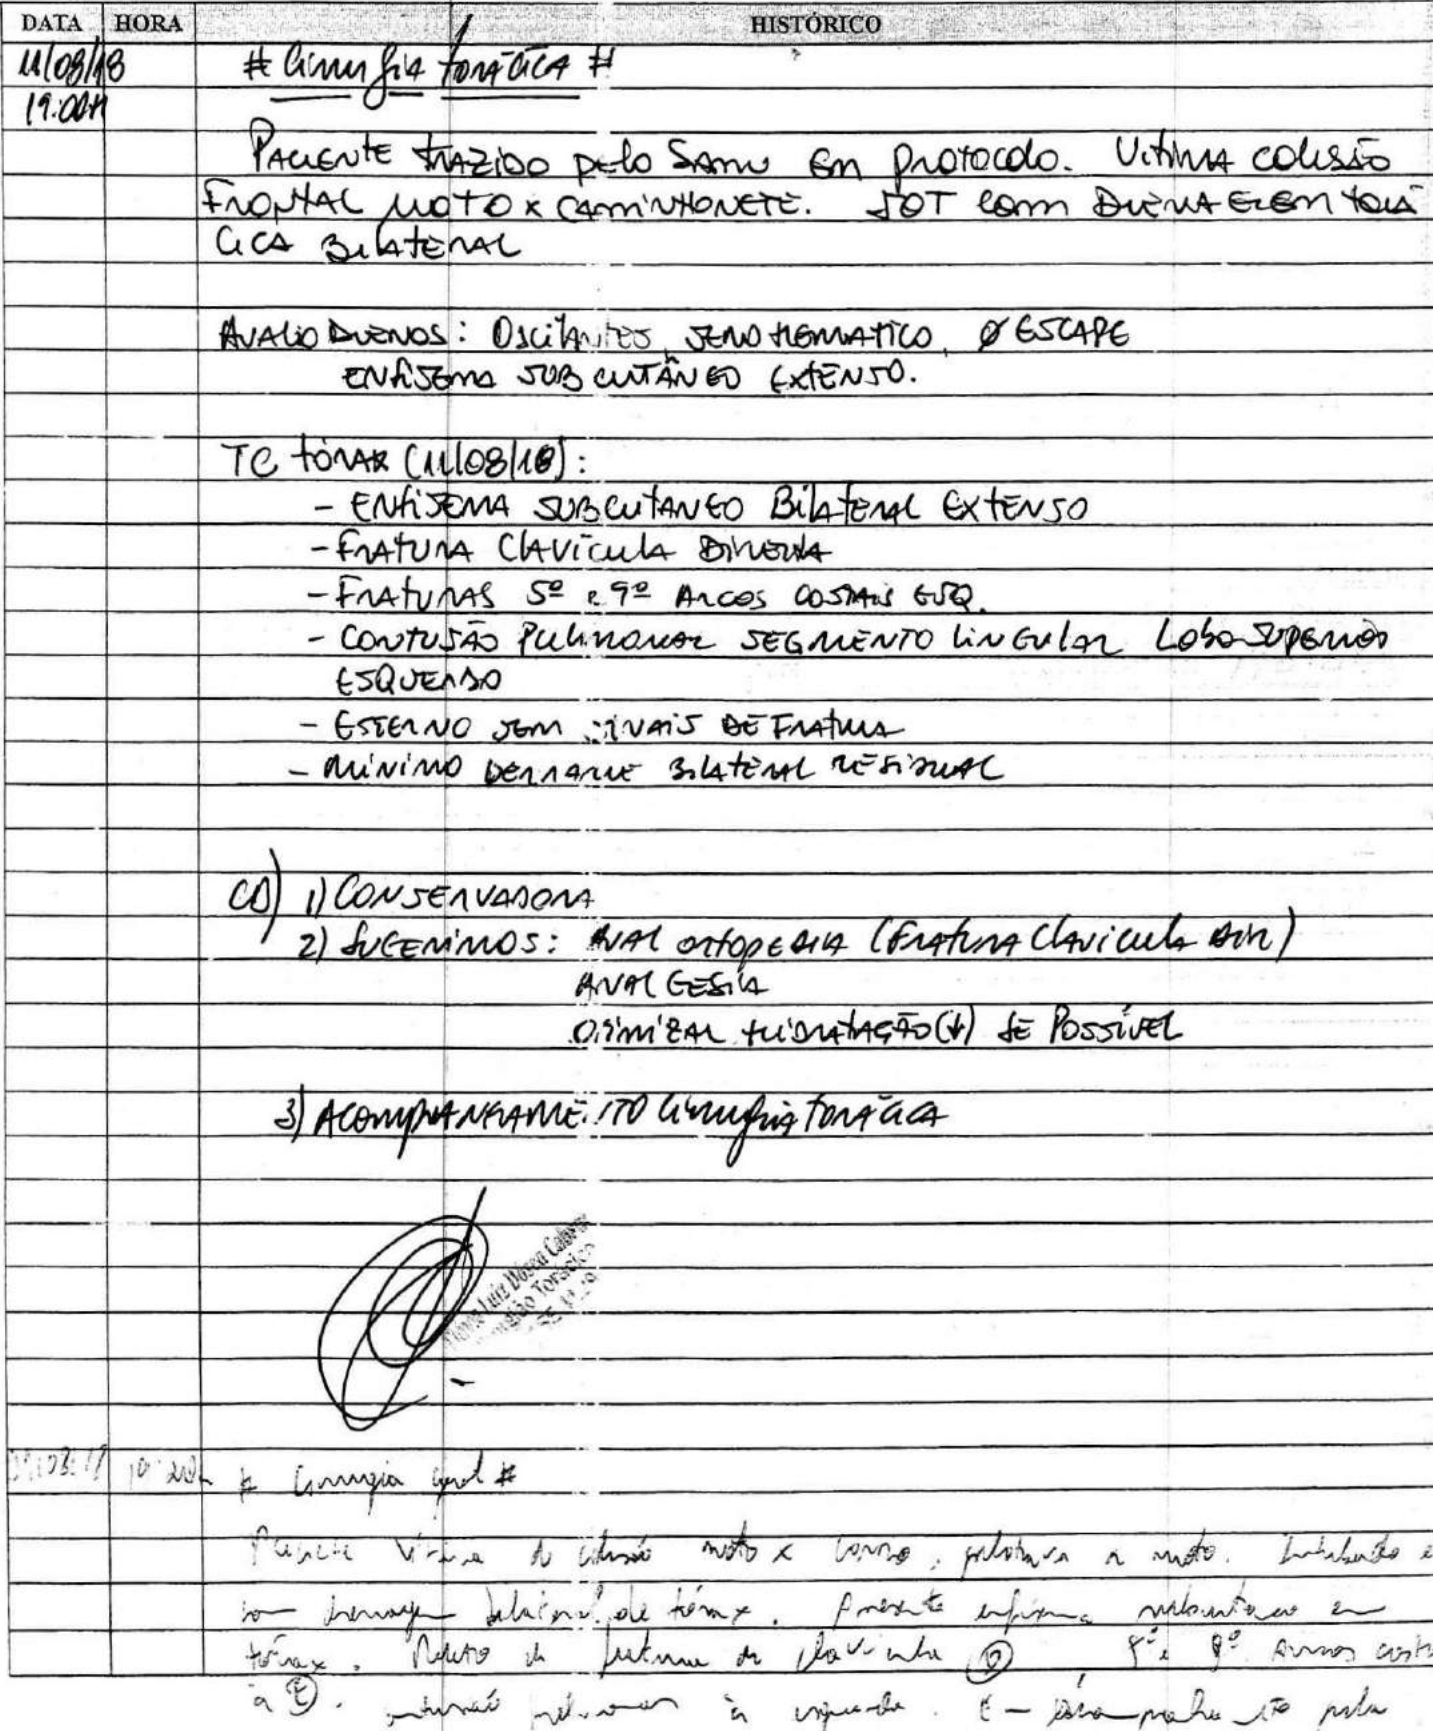 DATA HORA HISTÓRICO
11/08/18 # Cirurgia torácica #
19:00H
Paciente trazido pelo Samu em protocolo. Vítima colisão
frontal moto x caminhonete. IOT com drenagem torá
cica bilateral
Avalio drenos: Oscilantes, serohemático, Ø escape
enfisema subcutâneo extenso.
TC tórax (11/08/18):
- Enfisema subcutaneo bilateral extenso
- Fratura clavícula direita
- Fraturas 5º e 9º arcos costais esq.
- Contusão pulmonar segmento lingular lobo superior
esquerdo
- Esterno sem sinais de fratura
- Mínimo derrame bilateral residual
CD) 1) Conservadora
2) Sugerimos: Aval ortopedia (fratura clavicula dir)
Analgesia
Otimizar hidratação (↓) se possível
3) Acompanhamento cirurgia torácica
Luiz
# Cirurgia geral #
Paciente vítima de colisão moto x carro, pilotava a moto. Intubado e
com drenagem bilateral de tórax. Presente enfisema subcutaneo em
tórax. Relato de fratura de clavicula (D) 9º arcos cost
à (E). contusão pulmonar à esquerda. pela